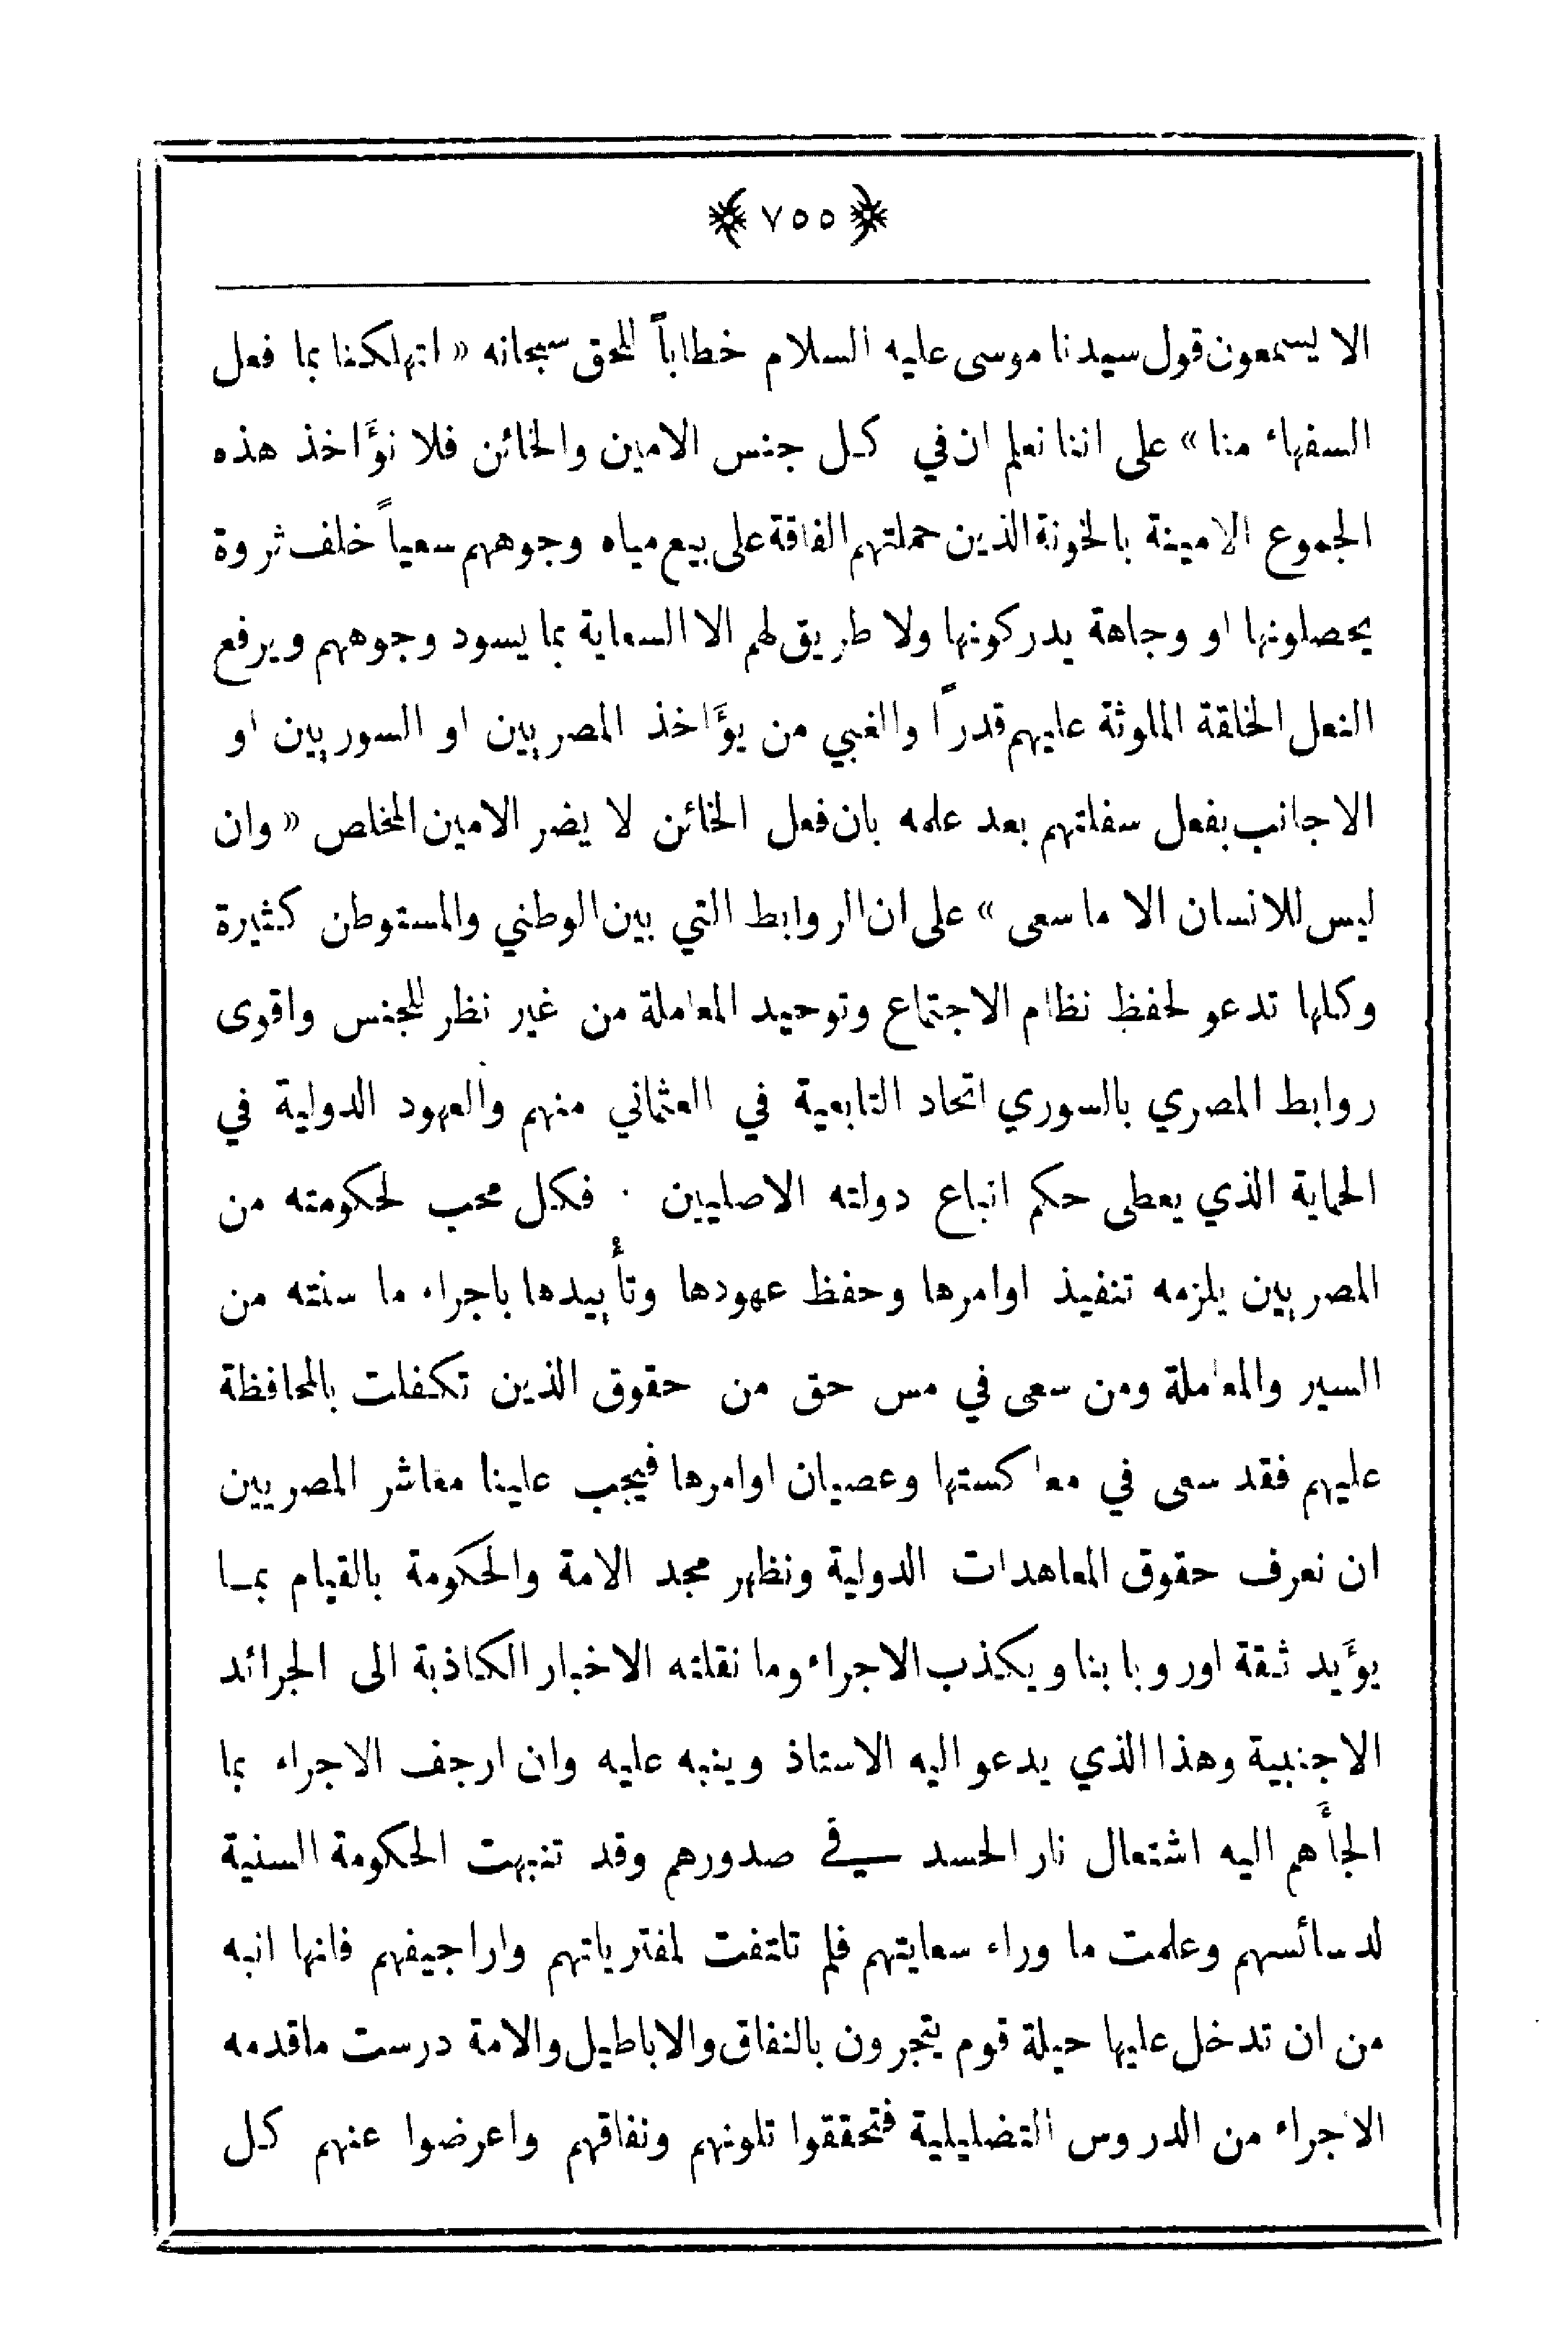 ﴿ ٧٥٥ ﴾
الا يسمعون قول سيدنا موسى عليه السلام خطاباً للحق سبحانه « اتهلكنا بما فعل
السفهاء منا » على اننا نعلم ان في كل جنس الامين والخائن فلا نؤَاخذ هذه
الجموع الامينة بالخونة الذين حملتهم الفاقة على بيع مياه وجوههم سعياً خلف ثروة
يحصلونها او وجاهة يدركونها ولا طريق لهم الا السعاية بما يسود وجوههم ويرفع
النعل الخلقة الملوثة عليهم قدراً والغبي من يؤَاخذ المصريين او السوريين او
الاجانب بفعل سفلتهم بعد علمه بان فعل الخائن لا يضر الامين المخلص « وان
ليس للانسان الا ما سعى » على ان الروابط التي بين الوطني والمستوطن كثيرة
وكلها تدعو لحفظ نظام الاجتماع وتوحيد المعاملة من غير نظر للجنس واقوى
روابط المصري بالسوري اتحاد التابعية في العثماني منهم والعهود الدولية في
الحماية الذي يعطى حكم اتباع دولته الاصليين . فكل محب لحكومته من
المصريين يلزمه تنفيذ اوامرها وحفظ عهودها وتأييدها باجراء ما سنته من
السير والمعاملة ومن سعى في مس حق من حقوق الذين تكفلت بالمحافظة
عليهم فقد سعى في معاكستها وعصيان اوامرها فيجب علينا معاشر المصريين
ان نعرف حقوق المعاهدات الدولية ونظهر مجد الامة والحكومة بالقيام بمـا
يؤَيد ثقة اوروبا بنا ويكذب الاجراء وما نقلته الاخبار الكاذبة الى الجرائد
الاجنبية وهذا الذي يدعو اليه الاستاذ وينبه عليه وان ارجف الاجراء بما
الجأَهم اليه اشتعال نار الحسد في صدورهم وقد تنبهت الحكومة السنية
لدسائسهم وعلمت ما وراء سعايتهم فلم تلتفت لمفترياتهم واراجيفهم فانها انبه
من ان تدخل عليها حيلة قوم يتجرون بالنفاق والاباطيل والامة درست ماقدمه
الاجراء من الدروس التضليلية فتحققوا تلونهم ونفاقهم واعرضوا عنهم كل